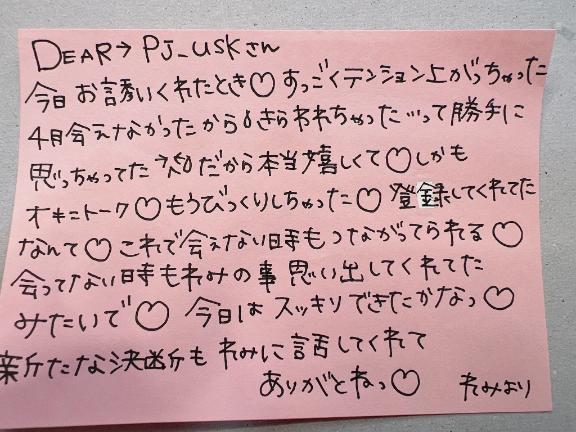 DEAR→ PJ_USKさん
今日 お誘いくれたとき♡ すっごくテンション上がっちゃった
4月会えなかったからきらわれちゃった…って勝手に
思っちゃってた だから本当嬉しくて♡ しかも
オキニトーク♡ もうびっくりしちゃった♡ 登録してくれてた
なんて♡ これで会えない時もつながってられる♡
会ってない時もれみの事 思い出してくれてた
みたいで♡ 今日は スッキリできたかなっ♡
新たな決断も れみに話してくれて
ありがとねっ♡ れみより